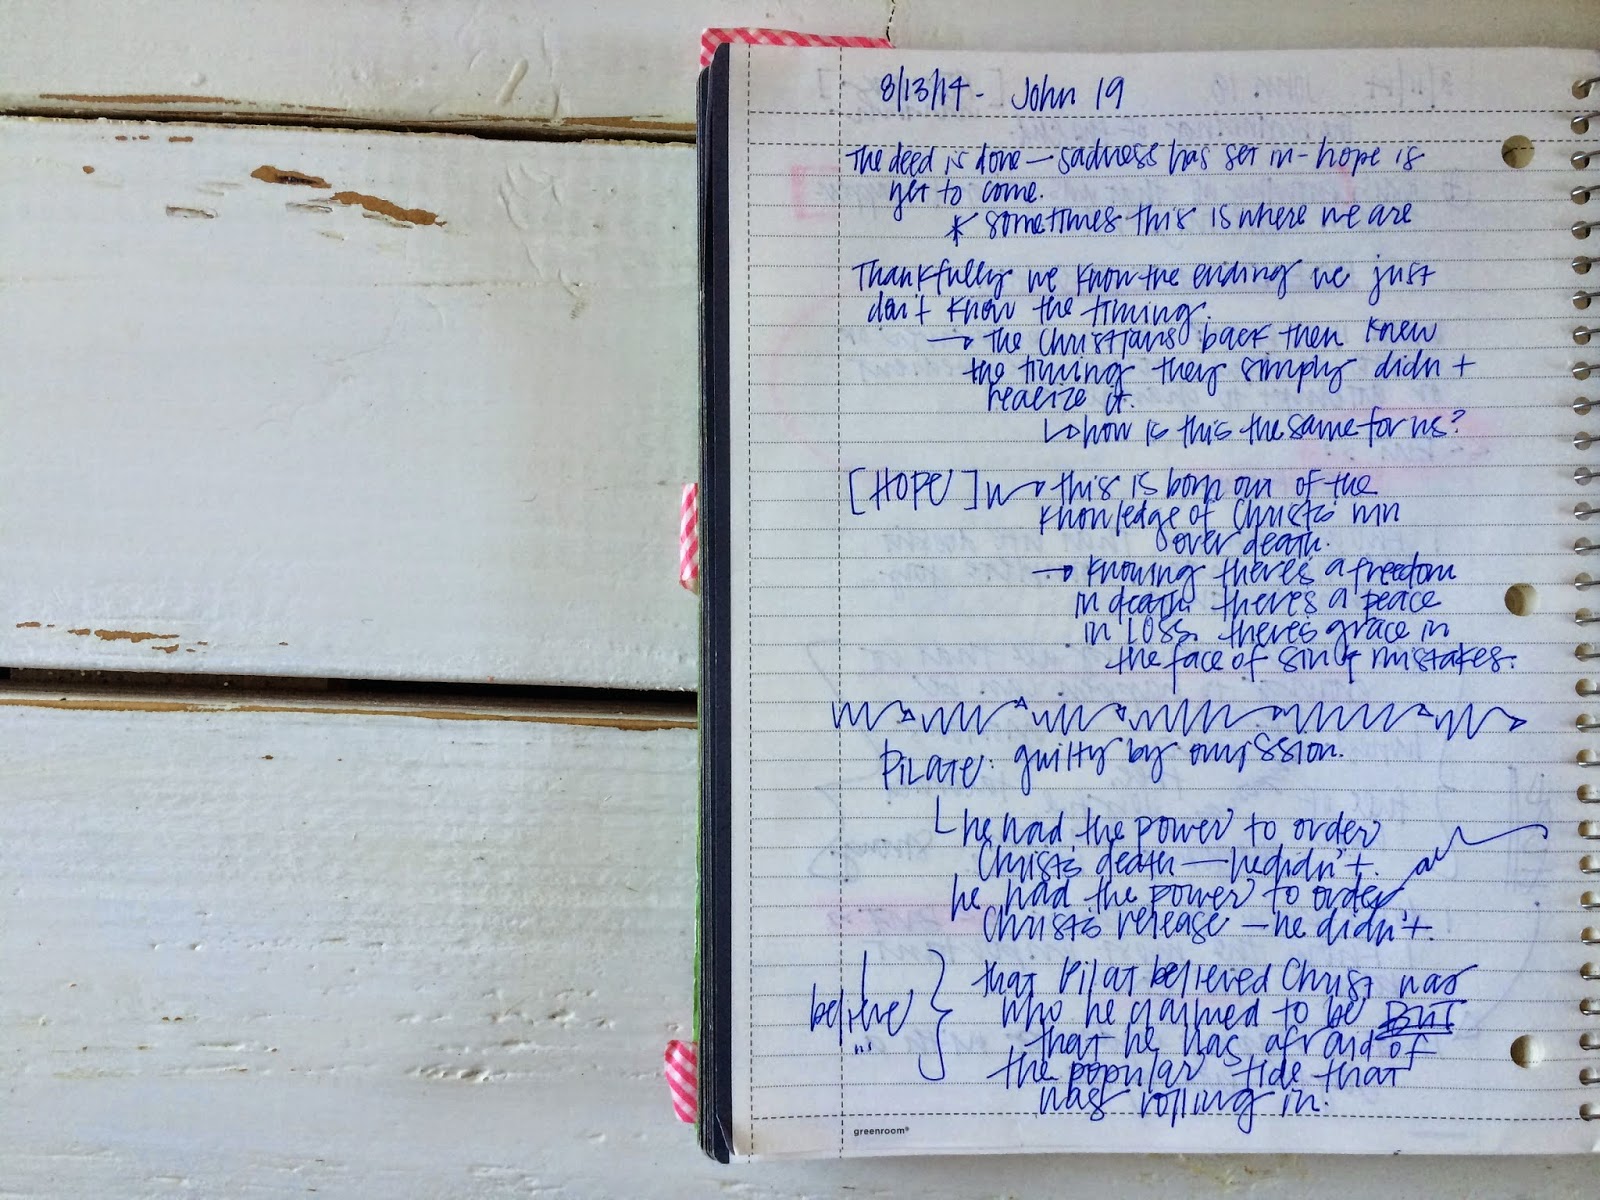 8/13/14 - John 19
The deed is done — sadness has set in - hope is
yet to come.
* sometimes this is where we are
Thankfully we know the ending we just
don't know the timing.
→ the Christians back then knew
the timing they simply didn't
realize it.
↳ how is this the same for us?
[HOPE] → this is born out of the
knowledge of Christ's win
over death.
→ knowing there's a freedom
in death. there's a peace
in loss. there's grace in
the face of sin & mistakes.
PILATE: guilty by omission.
he had the power to order
Christ's death — he didn't.
he had the power to order
Christ's release — he didn't.
I believe } that Pilat believed Christ was
who he claimed to be BUT
that he was afraid of
the popular tide that
was rolling in.
greenroom®